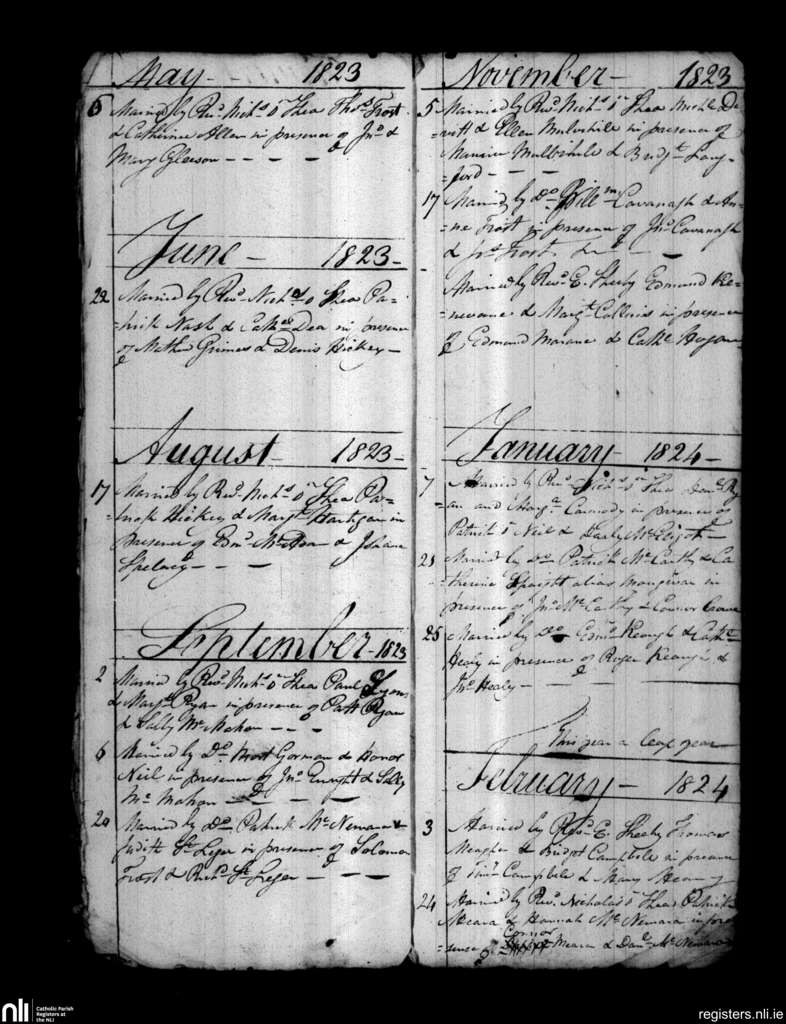 May - 1823
6 Married by Revd. Nichs. O Shea Thos. Frost
& Catherine Allen in presence of Jno. &
Mary Gleeson - - - -
June - 1823 -
22 Married by Revd. Nichs. O Shea Pa-
=trick Nash & Cathe. Dea in presence
of Mathw. Grimes & Denis Hickey -
August - 1823 -
17 Married by Revd. Nichs. O Shea Pa-
=trick Hickey & Margt. Hartigan in
presence of & Johana
- - -
September - 1823
2 Married by Revd. Nichs. O Shea Paul Lyons
& Margt. Ryan in presence of Patt Ryan
& Sally Mc. Mahon - - -
6 Married by Do. Gorman & Honor
Neil in presence of Jno. Enright & Sally
Mc. Mahon - - -
20 Married by Do. Patrick Mc. Nemara &
Judith St. Leger in presence of Solomon
Frost & Richd. St. Leger - - -
November - 1823
5 Married by Revd. Nichs. O Shea Michl. De
=vitt & Ellen Mulvihile in presence of
Maurice Mulvihile & Bridgt. Lang-
=ford - - -
17 Married by Do. Willm. Cavanagh & An-
=ne Frost in presence of Jno. Cavanagh
& Frost -
Married by Revd. E. Sheehy Edmund Ke-
& Margt. Collins in presence
of Edmund & Cathe. Hogan
January - 1824 -
7 Married by Revd. Nichs. O Shea Danl. Ry
=an and Margt. Carmody in presence of
Patrick O Neil & Mc. Eligot -
21 Married by Do. Patrick Mc. Carthy & Ca
=therine Spaight alias Mongavan in
presence of Jno. Mc. Carthy & Connor Crowe
25 Married by Do. Edmd. Keough & Cathe.
Healy in presence of Roger Keough &
Jno. Healy -
This year a leap year
February - 1824
3 Married by Revd. E. Sheehy Thomas
Meagher & Bridget Campbele in presence
of Campbele & Mary
24 Married by Revd. Nicholas O Shea Patrick
Meara & Hannah Mc. Nemara in pre
Connor
=sence of Meara & Danl. Mc. Nemara
nli
Catholic Parish
Registers at
the NLI
registers.nli.ie